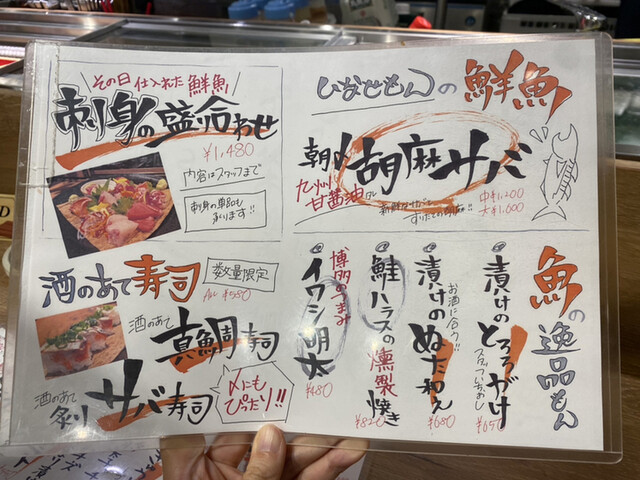 その日仕入れた鮮魚
刺身の盛合わせ
¥1,480
内容はスタッフまで
刺身の単品も
あります!!
ひなせもんの鮮魚
朝〆胡麻サバ
九州
甘醤油
中¥1,200
大¥1,600
酒のあて寿司
数量限定
ALL ¥580
酒のあて
真鯛寿司
酒のあて
炙りサバ寿司
〆にも
ぴったり!!
魚の逸品もん
漬けのとろろがけ
スタッフいちおし
¥650
お酒に合う!!
漬けのぬた和え
¥680
鮭ハラスの燻製焼き
¥820
博多のつまみ
イワシ明太
¥480